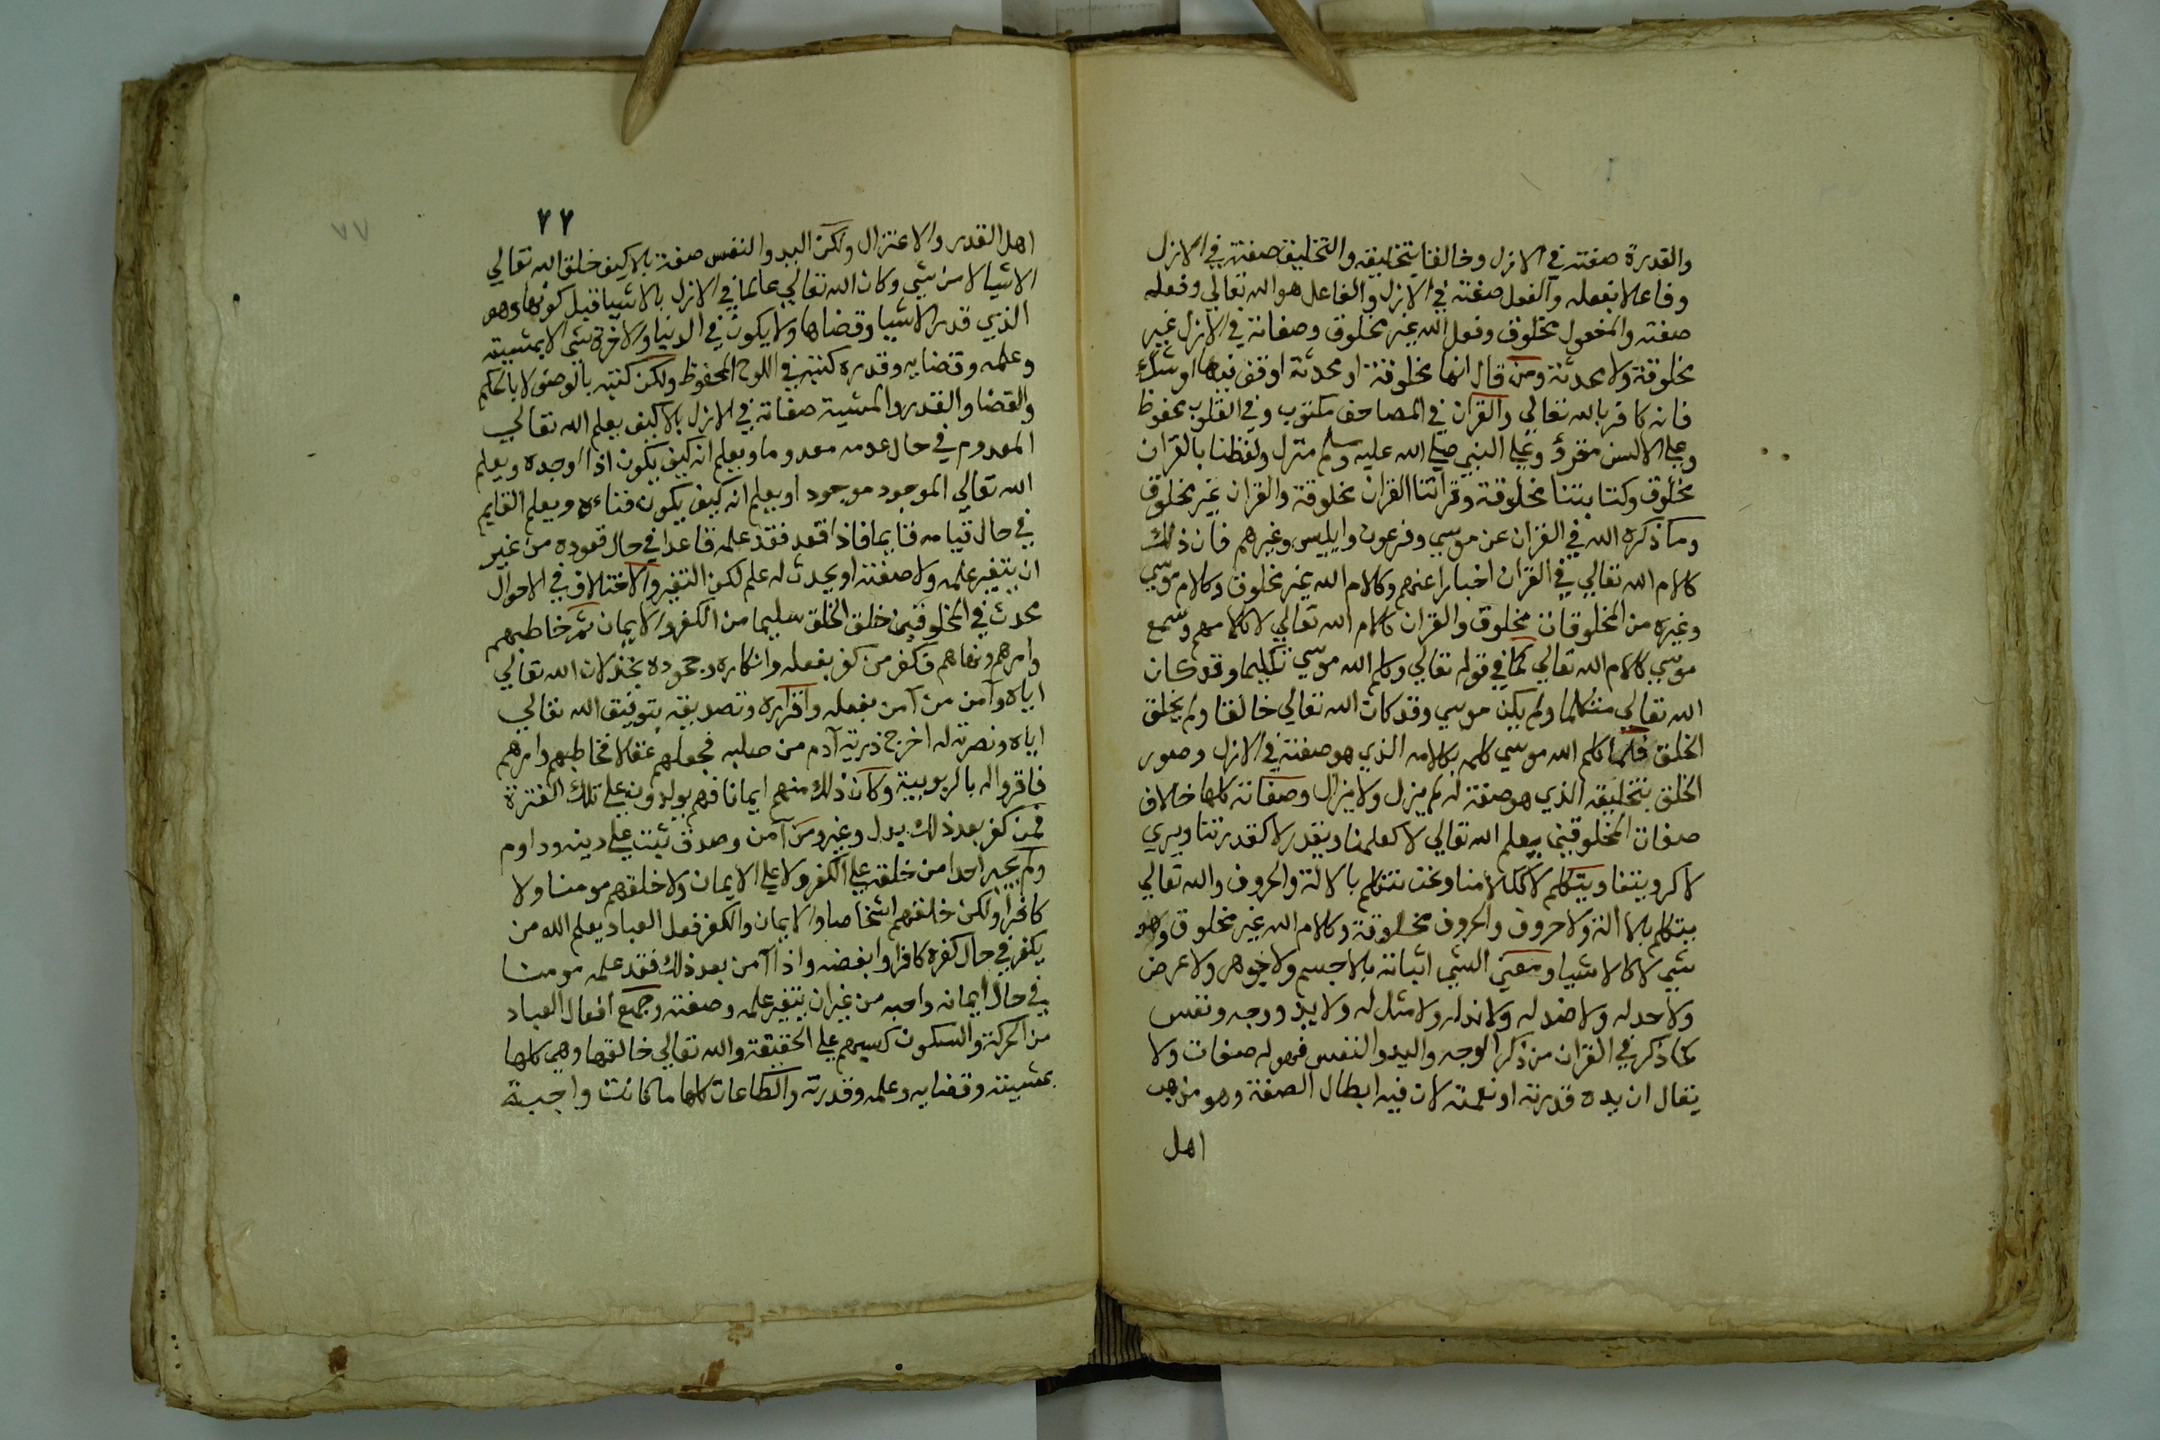 والقدرة صفته في الازل وخالقا بتخليقه والتخليق صفته في الازل
وفاعلا بفعله والفعل صفته في الازل والفاعل هو الله تعالي وفعله
صفته والمفعول مخلوق وفعل الله غير مخلوق وصفاته في الازل غير
مخلوقة ولا محدثة ومن قال انها مخلوقة او محدثة او قف فيها او شك
فانه كافر بالله تعالي والقران في المصاحف مكتوب وفي القلوب محفوظ
وعلي الالسن مقرؤ وعلي النبي صلي الله عليه وسلم منزل ولفظنا بالقران
مخلوق وكتابتنا مخلوقة وقراتنا القران مخلوقة والقران غير مخلوق
وما ذكره الله في القران عن موسي وفرعون وابليس وغيرهم فان ذلك
كلام الله تعالي في القران اخبارا عنهم وكلام الله غير مخلوق وكلام موسي
وغيره من المخلوقات مخلوق والقران كلام الله تعالي لا كلامهم وسمع
موسي كلام الله تعالي كما في قوله تعالي وكلم الله موسي تكليما وقد كان
الله تعالي متكلما ولم يكن موسي وقد كان الله تعالي خالقا ولم يخلق
الخلق فلما كلم الله موسي كلمه بكلامه الذي هو صفته في الازل وصور
الخلق بتخليقه الذي هو صفة له لم يزل ولا يزال وصفاته كلها خلاف
صفات المخلوقين يعلم الله تعالي لا كعلمنا ويقدر لا كقدرتنا ويري
لا كرويتنا ويتكلم لا ككلامنا ونحن نتكلم بالالة والحروف والله تعالي
يتكلم بلا الة ولا حروف والحروف مخلوقة وكلام الله غير مخلوق وهو
شي لا كالاشيا ومعني الشي اثباته بلا جسم ولا جوهر ولا عرض
ولا حد له ولا ضد له ولا ند له ولا مثل له وله يد ووجه ونفس
كما ذكر في القران من ذكر الوجه واليد والنفس فهو له صفات ولا
يقال ان يده قدرته او نعمته لان فيه ابطال الصفة وهو مذهب
اهل
٧٧
٧٧
اهل القدر والاعتزال ولكن اليد والنفس صفة بلا كيف خلق الله تعالي
الاشيا لا من شي وكان الله تعالي عالما في الازل بالاشيا قبل كونها وهو
الذي قدر الاشيا وقضاها ولا يكون في الدنيا والاخرة شي الا بمشيته
وعلمه وقضايه وقدره كتبه في اللوح المحفوظ ولكن كتبه بالوصف لا بالحكم
والقضا والقدر والمشية صفاته في الازل بلا كيف يعلم الله تعالي
المعدوم في حال عدمه معدوما ويعلم انه كيف يكون اذا اوجده ويعلم
الله تعالي الموجود موجودا ويعلم انه كيف يكون فناءه ويعلم القايم
في حال قيامه قايما فاذا قعد فقد علمه قاعدا في حال قعوده من غير
ان يتغير علمه ولا صفته او يحدث له علم لكن التغير والاختلاف في الاحوال
محدث في المخلوقين خلق الخلق سليما من الكفر والايمان ثم خاطبهم
وامرهم ونهاهم فكفر من كفر بفعله وانكاره وجحوده بخذلان الله تعالي
اياه وآمن من آمن بفعله واقراره وتصديقه بتوفيق الله تعالي
اياه ونصرته له اخرج ذرية آدم من صلبه فجعلهم عقلا فخاطبهم وامرهم
فاقروا له بالربوبية وكان ذلك منهم ايمانا فهم يولدون علي تلك الفترة
فمن كفر بعد ذلك بدل وغير ومن آمن وصدق ثبت علي دينه وداوم
ولم يجبر احدا من خلقه علي الكفر ولا علي الايمان ولا خلقهم مومنا ولا
كافرا ولكن خلقهم اشخاصا والايمان والكفر فعل العباد يعلم الله من
يكفر في حال كفره كافرا وابغضه واذا آمن بعد ذلك فقد علمه مومنا
في حال ايمانه واحبه من غير ان يتغير علمه وصفته وجميع افعال العباد
من الحركة والسكون كسبهم علي الحقيقة والله تعالي خالقها وهي كلها
بمشيته وقضايه وعلمه وقدرته والطاعات كلها ما كانت واجبة